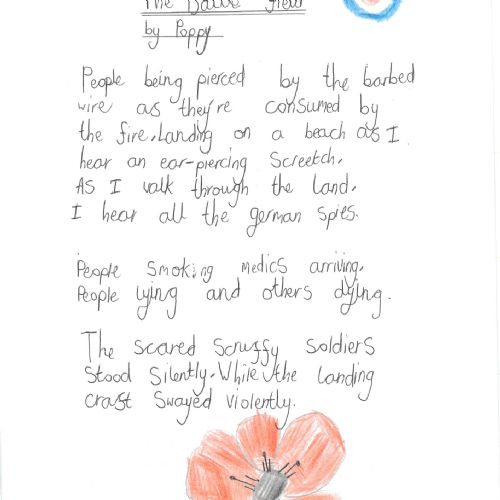 The Battle Field
by Poppy
People being pierced by the barbed
wire as they're consumed by
the fire. Landing on a beach as I
hear an ear-piercing screetch.
As I walk through the land,
I hear all the german spies.
People smoking medics arriving,
People lying and others dying.
The scared scruffy soldiers
stood silently. While the landing
craft swayed violently.